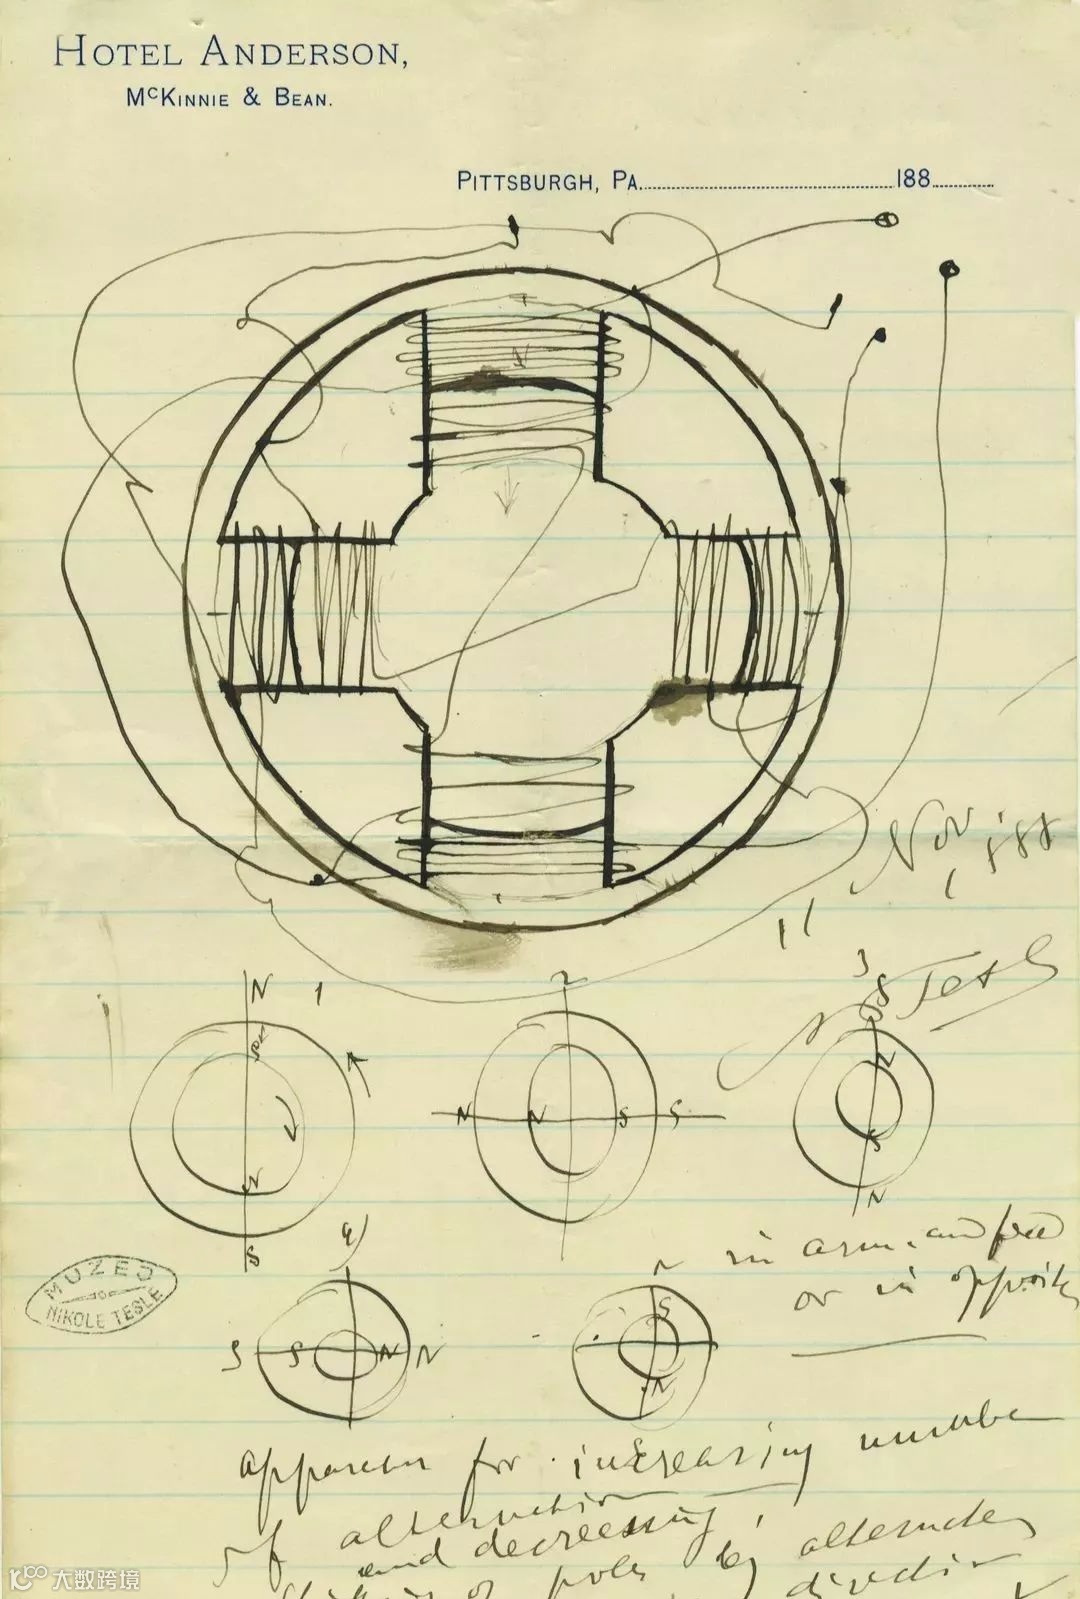 HOTEL ANDERSON,
McKINNIE & BEAN.
PITTSBURGH, PA. 188
N
11 Nov 188
Tesla
N 1
S
N
S
2
N N S S
3
S
N
S
N
4)
S S N N
N
S
N
S
in arm. and field
or in opposite
MUZEJ
NIKOLE TESLE
for increasing number
of alternations
and decreasing
of poles by alternate
大数跨境